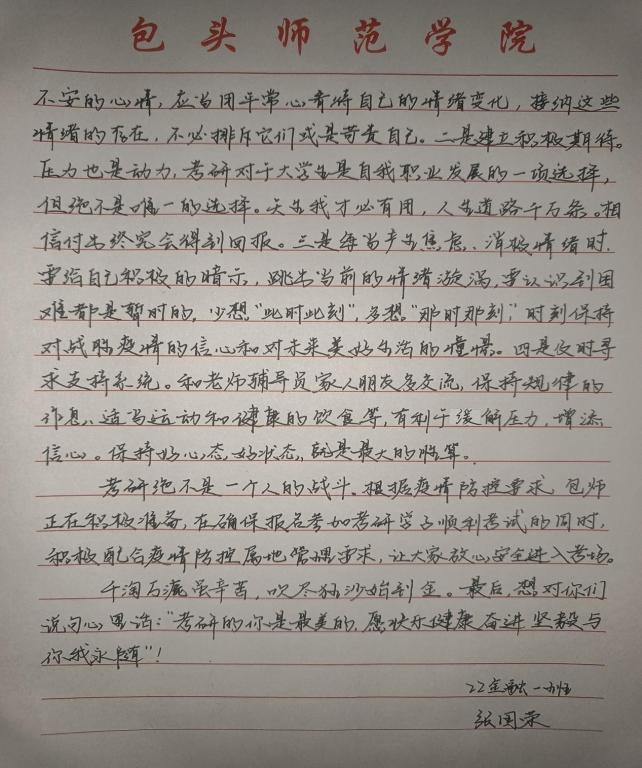 包头师范学院
不安的心情，应当用平常心看待自己的情绪变化，接纳这些
情绪的存在，不必排斥它们或是苛责自己。二是建立积极期待。
压力也是动力，考研对于大学生是自我职业发展的一项选择，
但绝不是唯一的选择。天生我才必有用，人生道路千万条。相
信付出终究会得到回报。三是每当产生焦虑、消极情绪时，
要给自己积极的暗示，跳出当前的情绪漩涡，要认识到困
难都是暂时的，少想“此时此刻”，多想“那时那刻”，时刻保持
对战胜疫情的信心和对未来美好生活的憧憬。四是及时寻
求支持系统。和老师辅导员家人朋友多交流，保持规律的
作息、适当运动和健康的饮食等，有利于缓解压力，增添
信心。保持好心态，好状态，就是最大的胜算。
考研绝不是一个人的战斗。根据疫情防控要求，包师
正在积极准备，在确保报名参加考研学子顺利考试的同时，
积极配合疫情防控属地管理要求，让大家放心安全进入考场。
千淘万漉虽辛苦，吹尽狂沙始到金。最后，想对你们
说句心里话：“考研的你是最美的，愿快乐健康奋进坚毅与
你我永随”！
22金融一班
张国荣